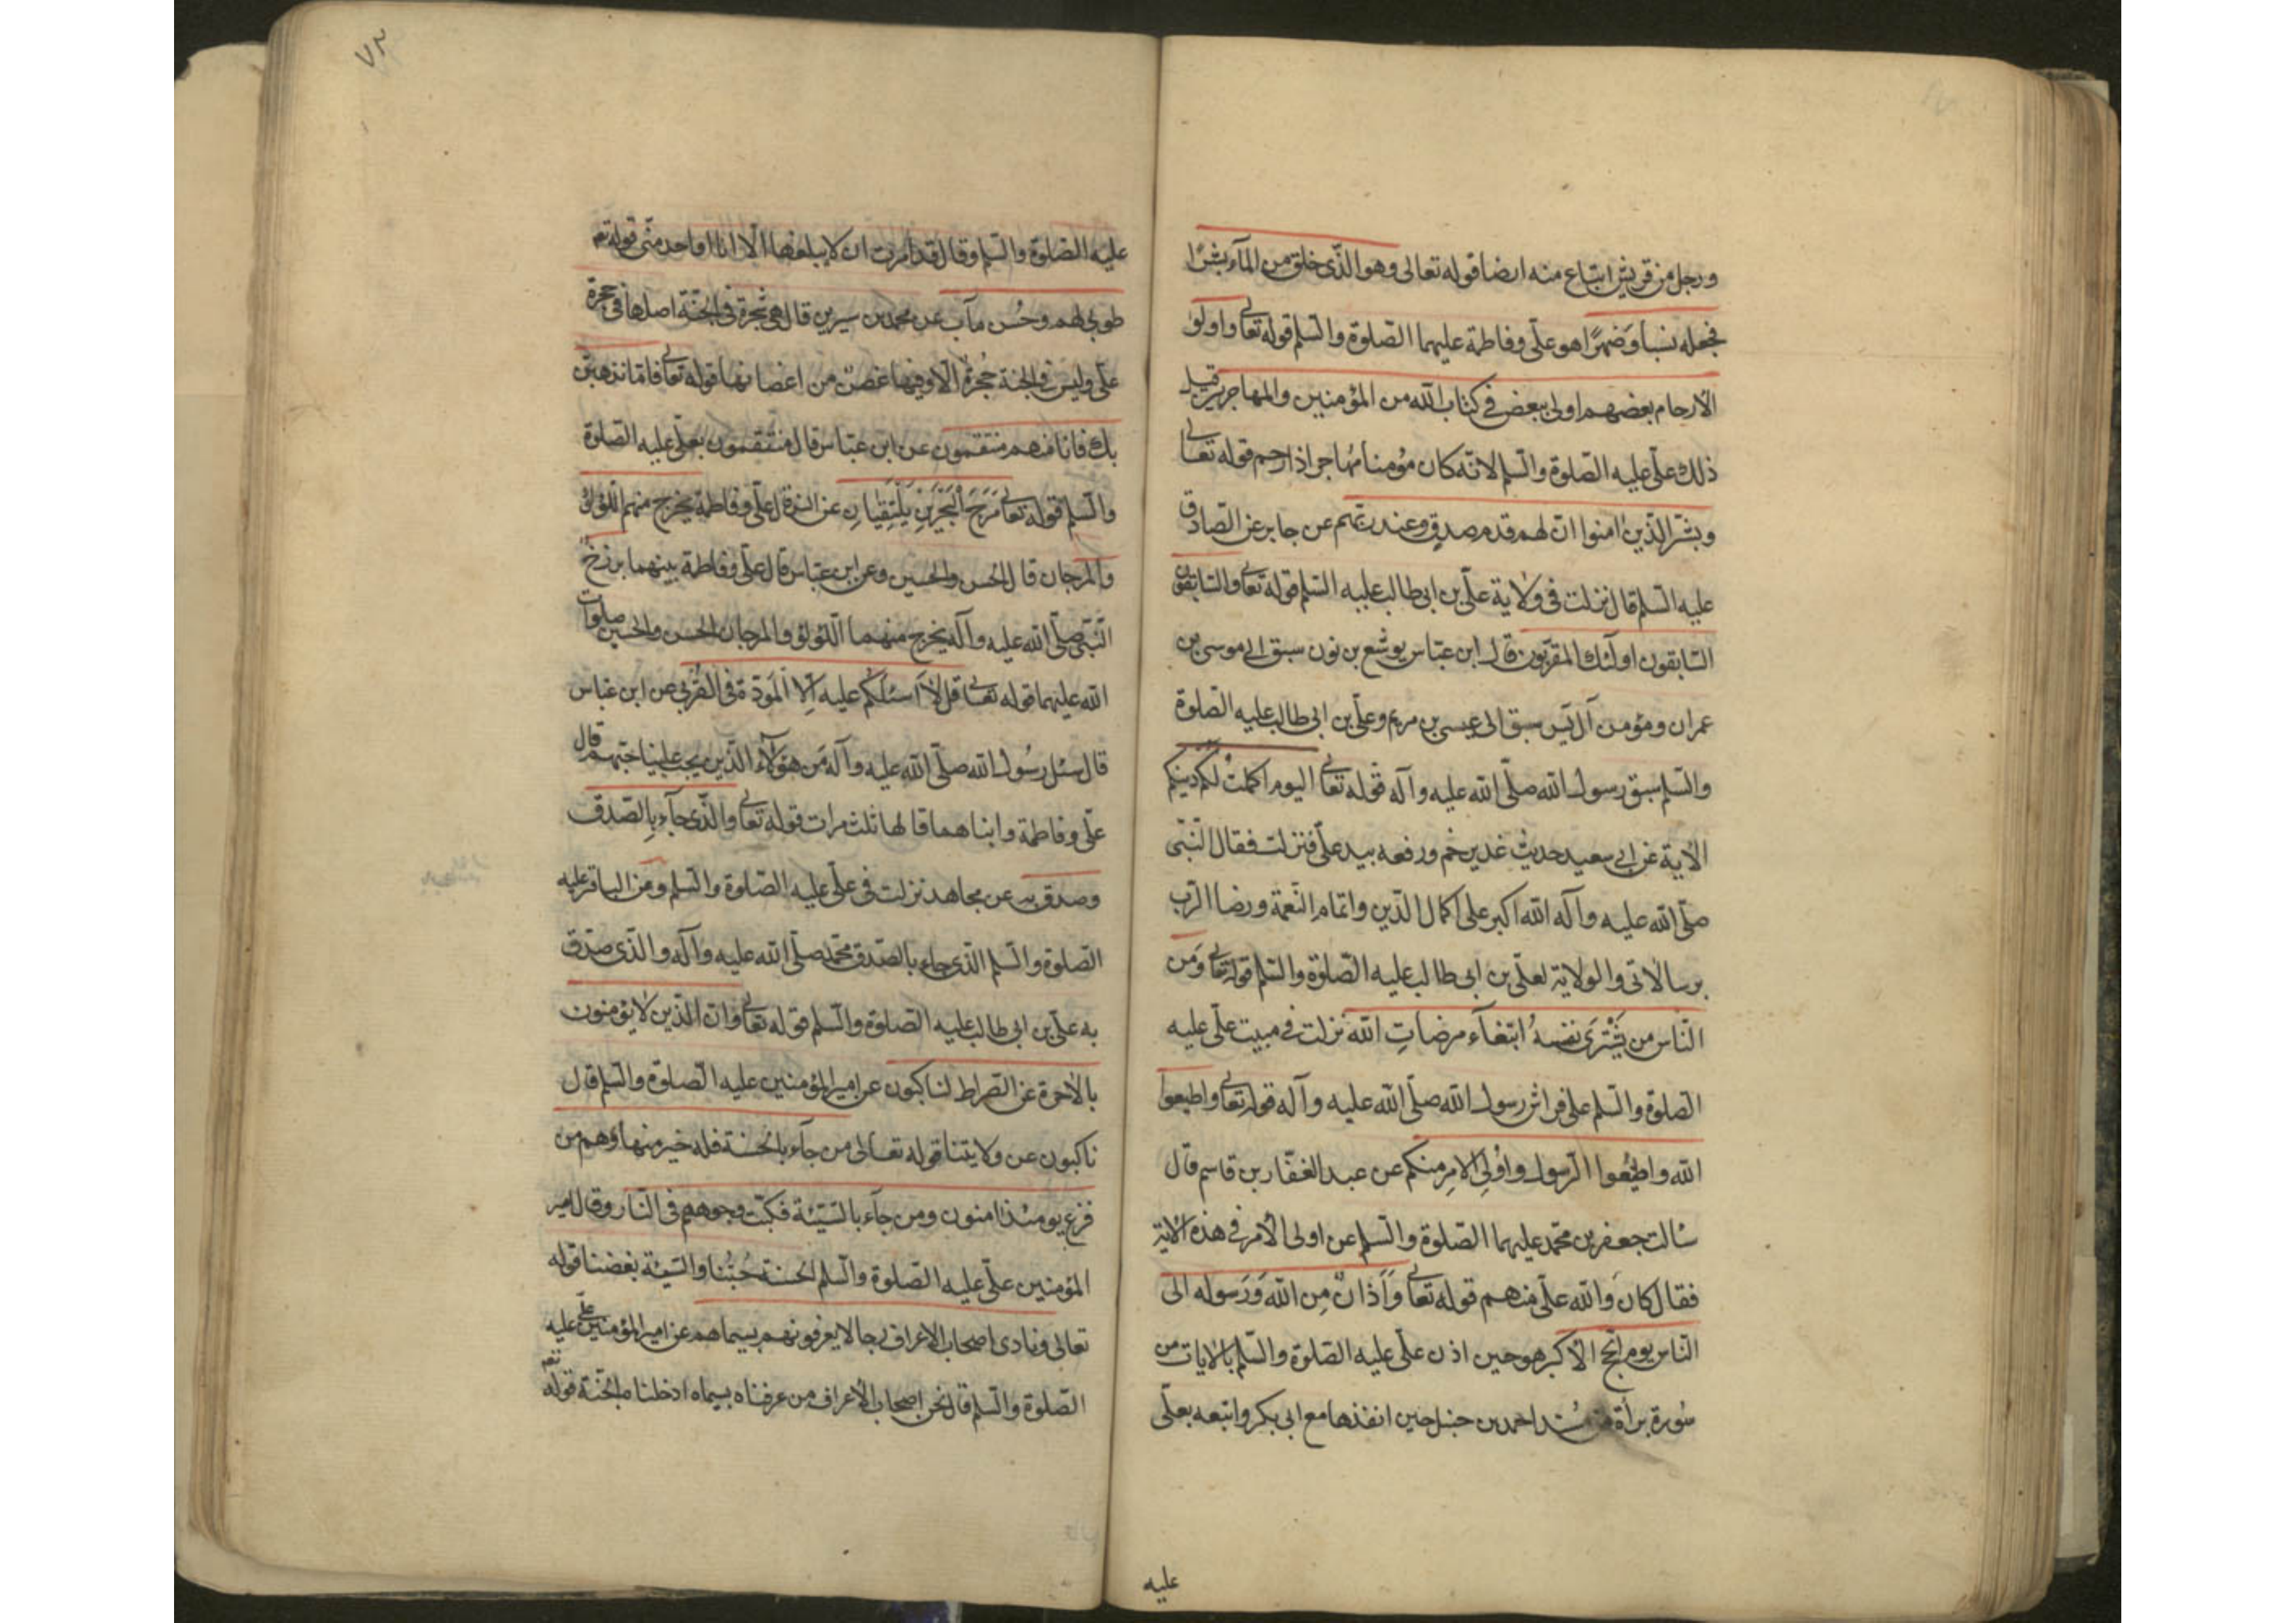 ورجل من قريش ابتاع منه ارضا قوله تعالى وهو الذى خلق من المآء بشرًا
فجعله نسبا وصهرًا هو علىّ وفاطمة عليهما الصلوة والسلم قوله تعالى واولوا
الأرحام بعضهم اولى ببعض فى كتاب الله من المؤمنين والمهاجرين قيل
ذلك علىّ عليه الصلوة والسلم لانه كان مؤمنا مهاجرا ذا رحم قوله تعالى
وبشر الذين امنوا ان لهم قدم صدق عند ربهم عن جابر عن الصادق
عليه السلم قال نزلت فى ولاية علىّ بن ابى طالب عليه السلم قوله تعالى والسابقون
السابقون اولئك المقربون قال ابن عباس يوشع بن نون سبق الى موسى بن
عمران ومؤمن آل يس سبق الى عيسى بن مريم وعلىّ بن ابى طالب عليه الصلوة
والسلم سبق رسول الله صلّى الله عليه وآله قوله تعالى اليوم اكملت لكم دينكم
الأية عن ابى سعيد حديث غدير خم ورفعه بيد علىّ فنزلت فقال النبىّ
صلّى الله عليه وآله الله اكبر على اكمال الدين واتمام النعمة ورضا الرب
برسالاتى والولاية لعلىّ بن ابى طالب عليه الصلوة والسلم قوله تعالى ومن
الناس من يشترى نفسه ابتغآء مرضات الله نزلت فى مبيت علىّ عليه
الصلوة والسلم على فراش رسول الله صلّى الله عليه وآله قوله تعالى واطيعوا
الله واطيعوا الرسول واولى الامر منكم عن عبد الغفار بن قاسم قال
سالت جعفر بن محمد عليهما الصلوة والسلم عن اولى الأمر فى هذه الأية
فقال كان والله علىّ منهم قوله تعالى وَاَذانٌ مِن الله وَرَسوله الى
الناس يوم الحج الأكبر هو حين اذن علىّ عليه الصلوة والسلم بالايات من
سورة براة مسند احمد بن حنبل حين انفذها مع ابى بكر واتبعه بعلىّ
عليه
٧٣
عليه الصلوة والسلم وقال قد امرت ان لا يبلغها الّا انا او احد منى قوله تع
طوبى لهم وحُسن مآب عن محمد بن سيرين قال هى شجرة فى الجنة اصلها فى حجرة
علىّ وليس فى الجنة حجرة الّا وفيها غصن من اغصانها قوله تعالى فامّا نذهبن
بك فانا منهم منتقمون عن ابن عباس قال منتقمون بعلىّ عليه الصلوة
والسلم قوله تعالى مَرَجَ الْبَحْرَيْنِ يَلْتَقِيَانِ عن انس قال علىّ وفاطمة يخرج منهما اللؤلؤ
والمرجان قال الحسن والحسين وعن ابن عباس قال علىّ وفاطمة بينهما برزخ
النبىّ صلّى الله عليه وآله يخرج منهما اللؤلؤ والمرجان الحسن والحسين صلوات
الله عليهما قوله تعالى قل لا اسئلكم عليه الّا المودّة فى القربى عن ابن عباس
قال سئل رسول الله صلّى الله عليه وآله من هؤلآء الذين يجب علينا حبّهم قال
علىّ وفاطمة وابناهما قالها ثلث مرات قوله تعالى والذى جآء بالصدق
وصدق به عن مجاهد نزلت فى علىّ عليه الصلوة والسلم وعن الباقر عليه
الصلوة والسلم الذى جاء بالصدق محمد صلّى الله عليه وآله والذى صدّق
به علىّ بن ابى طالب عليه الصلوة والسلم قوله تعالى وان الذين لا يؤمنون
بالأخرة عن الصراط لناكبون عن امير المؤمنين عليه الصلوة والسلم قال
ناكبون عن ولايتنا قوله تعالى من جآء بالحسنة فله خير منها وهم من
فزع يومئذ امنون ومن جآء بالسيئة فكبت وجوههم فى النار وقال امير
المؤمنين علىّ عليه الصلوة والسلم الحسنة حبّنا والسيئة بغضنا قوله
تعالى ونادى اصحاب الاعراف رجالا يعرفونهم بسيماهم عن امير المؤمنين علىّ عليه
الصلوة والسلم قال نحن اصحاب الأعراف من عرفناه بسيماه ادخلناه الجنة قوله تعم